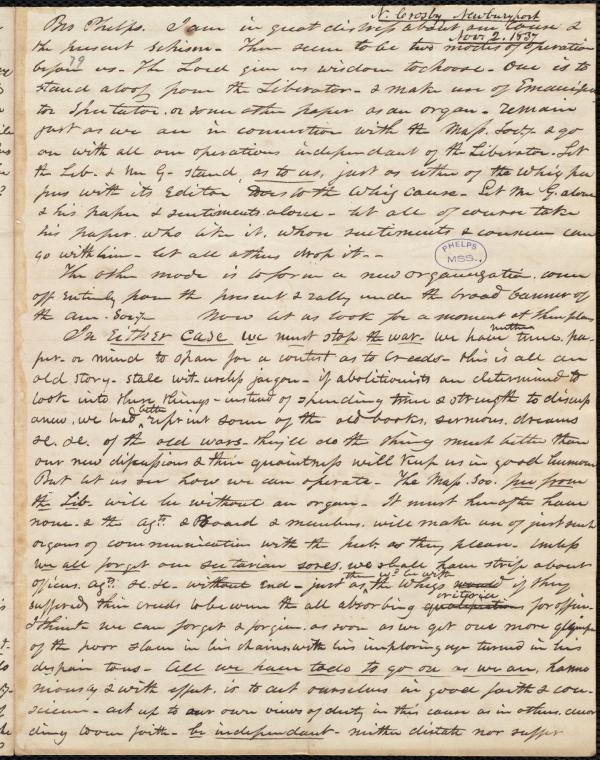 N. Crosby Newburyport
Nov. 2. 1837
Bro Phelps. I am in great distress about our Cause &
the present Schism - There seem to be two modes of operation
before us - The Lord give us wisdom to choose - One is to
stand aloof from the Liberator - & make use of Emancipa
tor Spectator, or some other paper as an organ - remain
just as we are in connection with the Mass. Socy. & go
on with all our operations independent of the Liberator - Let
the Lib. & Mr G - stand, as to us, just as either of the Whig pa
pers with its Editor does to the Whig cause - Let Mr G. alone
& his paper & sentiments alone - let all of course take
his paper who like it, whose sentiments & conscience can
go with him - let all others drop it -
PHELPS
MSS.,
The other mode is to form a new organization, come
off entirely from the present & rally under the broad banner of
the Am. Socy. Now let us look for a moment at these plans
In Either Case we must stop the war - we have neither time, pa-
per - or mind to span for a contest as to Creeds - this is all an
old story - stale wit - jargon - if abolitionists are determined to
look into these things - instead of spending time & strength to discuss
anew, we had better reprint some of the old books, sermons, dreams
&c. &c. of the old wars - they'll do the thing much better than
our new discussions & their quaintness will keep us in good humour
But let us see how we can operate - The Mass. Soc. free from
the Lib. will be without an organ - It must hereafter have
none - & the Agts. & Board & members will make use of just such
organs of communication with the pub. as they please - Unless
we all forget our sectarian sores, we shall have strife about
officers, Agts. &c. &c. without End - just as the Whigs would if they
suffered their creeds to become the all absorbing criteria for office -
I think we can forget & forgive as soon as we get one more glimpse
of the poor slave in his chains with his imploring eye turned in his
despair to us - All we have to do to go on as we are, harmo
niously & with effect, is to act ourselves in good faith & con-
science - act up to our own views of duty in this cause as in others, accor
ding to our faith - be independent - neither dictate nor suffer